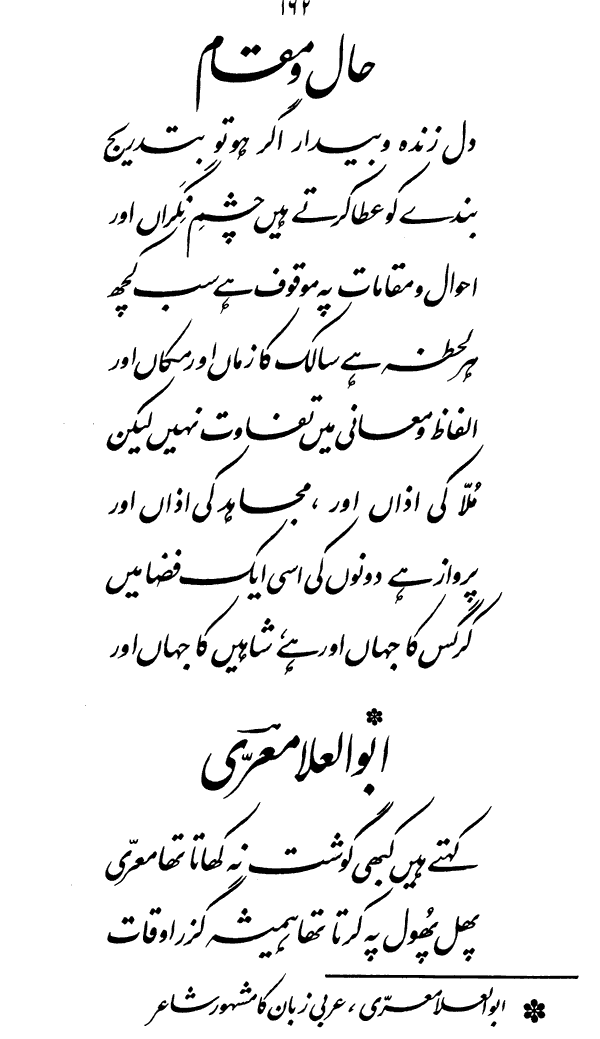 ۱۶۲
حال و مقام
دل زندہ و بیدار اگر ہو تو بتدریج
بندے کو عطا کرتے ہیں چشمِ نِگَراں اور
احوال و مقامات پہ موقوف ہے سب کچھ
ہر لحظہ ہے سالک کا زماں اور مکاں اور
الفاظ و معانی میں تفاوت نہیں لیکن
مُلّا کی اذاں اور ، مجاہد کی اذاں اور
پرواز ہے دونوں کی اسی ایک فضا میں
کرگس کا جہاں اور ہے، شاہیں کا جہاں اور
ابوالعلا معرّیؔ*
کہتے ہیں کبھی گوشت نہ کھاتا تھا معرّی
پھل پھُول پہ کرتا تھا ہمیشہ گزر اوقات
* ابوالعلا معرّی ، عربی زبان کا مشہور شاعر